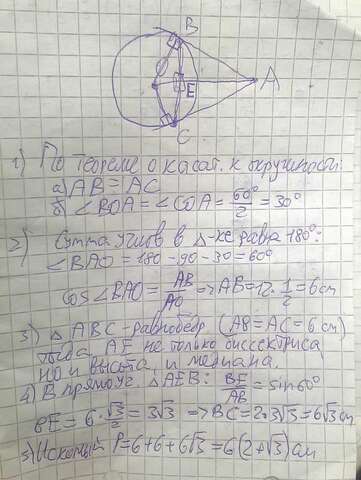 B
O
A
E
C
1) По теореме о касат. к окружности:
а) AB = AC
б) ∠BOA = ∠COA = 60°/2 = 30°
2) Сумма углов в Δ-ке равна 180°:
∠BAO = 180 - 90 - 30 = 60°
cos∠BAO = AB/AO => AB = 12 · 1/2 = 6 cm
3) Δ ABC - равнобедр (AB = AC = 6 cm)
тогда AE не только биссектриса
но и высота, и медиана.
4) В прямоуг. ΔAEB: BE/AB = sin60°
BE = 6 · √3/2 = 3√3 => BC = 2·3√3 = 6√3 cm
5) Искомый P = 6 + 6 + 6√3 = 6(2+√3) см